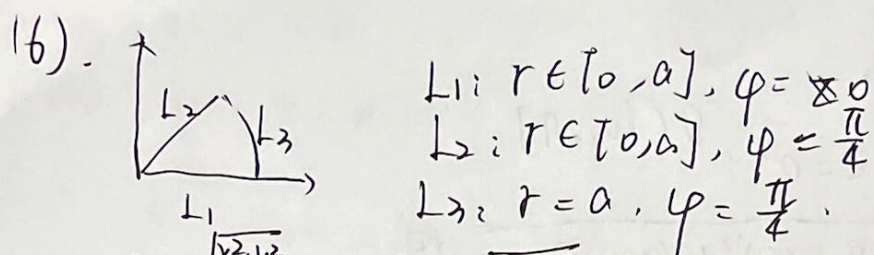 16).
L2
L3
L1
L1: r ∈ [0, a], φ = 0
L2: r ∈ [0, a], φ = π/4
L3: r = a, φ = π/4.